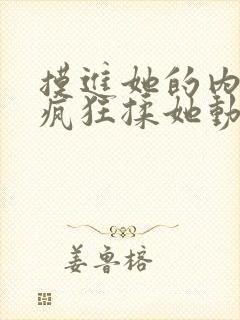 摸进她的内
疯狂揉她动
姜鲁榕